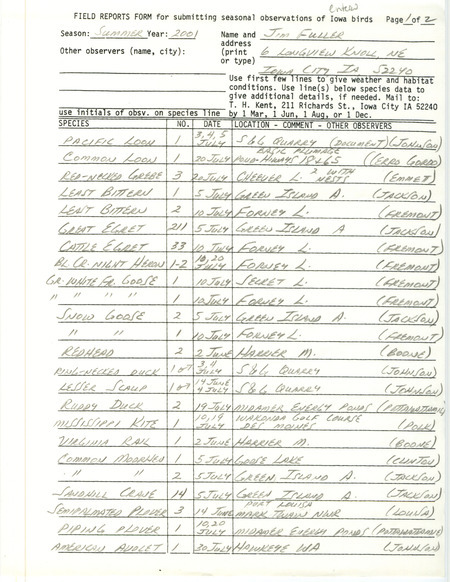 Entered
FIELD REPORTS FORM for submitting seasonal observations of Iowa birds Page 1 of 2
Season: SUMMER Year: 2001 Name and JIM FULLER
address
Other observers (name, city): (print 6 LONGVIEW KNOLL, NE
or type) IOWA CITY IA 52240
Use first few lines to give weather and habitat
conditions. Use line(s) below species data to
give additional details, if needed. Mail to:
T. H. Kent, 211 Richards St., Iowa City IA 52240
use initials of obs. on species line by 1 Mar, 1 Jun, 1 Aug, or 1 Dec.
SPECIES NO. DATE LOCATION - COMMENT - OTHER OBSERVERS
PACIFIC LOON 1 3, 4, 5 JULY S&G QUARRY (DOCUMENT) (JOHNSON)
BASIC PLUMAGE
COMMON LOON 1 20 JULY POND - HIWAYS 18 & 65 (CERRO GORDO)
RED-NECKED GREBE 3 20 JULY CHEEVER L. 2 WITH NESTS (EMMET)
LEAST BITTERN 1 5 JULY GREEN ISLAND A. (JACKSON)
LEAST BITTERN 2 10 JULY FORNEY L. (FREMONT)
GREAT EGRET 211 5 JULY GREEN ISLAND A (JACKSON)
CATTLE EGRET 33 10 JULY FORNEY L. (FREMONT)
BL. CR. NIGHT HERON 1-2 10, 20 JULY FORNEY L. (FREMONT)
GR. WHITE FR. GOOSE 1 10 JULY SECRET L. (FREMONT)
" " " " 1 10 JULY FORNEY L. (FREMONT)
SNOW GOOSE 2 5 JULY GREEN ISLAND A. (JACKSON)
" " 1 10 JULY FORNEY L. (FREMONT)
REDHEAD 2 2 JUNE HARRIER M. (BOONE)
RING-NECKED DUCK 1 ♂ 3, 11 JULY S&G QUARRY (JOHNSON)
LESSER SCAUP 1 ♂ 14 JUNE 4 JULY S&G QUARRY (JOHNSON)
RUDDY DUCK 2 19 JULY MIDAMER ENERGY PONDS (POTTAWATTAMIE)
MISSISSIPPI KITE 1 10, 19 JULY WAKONDA GOLF COURSE
DES MOINES (POLK)
VIRGINIA RAIL 1 2 JUNE HARRIER M. (BOONE)
COMMON MOORHEN 1 5 JULY GOOSE LAKE (CLINTON)
" " 2 5 JULY GREEN ISLAND A. (JACKSON)
SANDHILL CRANE 14 5 JULY GREEN ISLAND A. (JACKSON)
SEMIPALMATED PLOVER 3 14 JUNE PORT LOUISA
MARK TWAIN NWR (LOUISA)
PIPING PLOVER 1 10, 20 JULY MIDAMER ENERGY PONDS (POTTAWATTAMIE)
AMERICAN AVOCET 1 30 JULY HAWKEYE WA (JOHNSON)